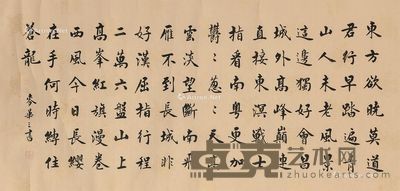 東方欲曉莫道
君行早踏遍青
山人未老風景
這邊獨好會昌
城外高峰顛連
直接東溟戰士
指看南粵更加
鬱〻蔥〻天高
雲淡望斷南飛
雁不到長城非
好漢屈指行程
二萬六盤山上
高峰紅旗漫卷
西風今日長纓
在手何時縛住
蒼龍
麥華三書